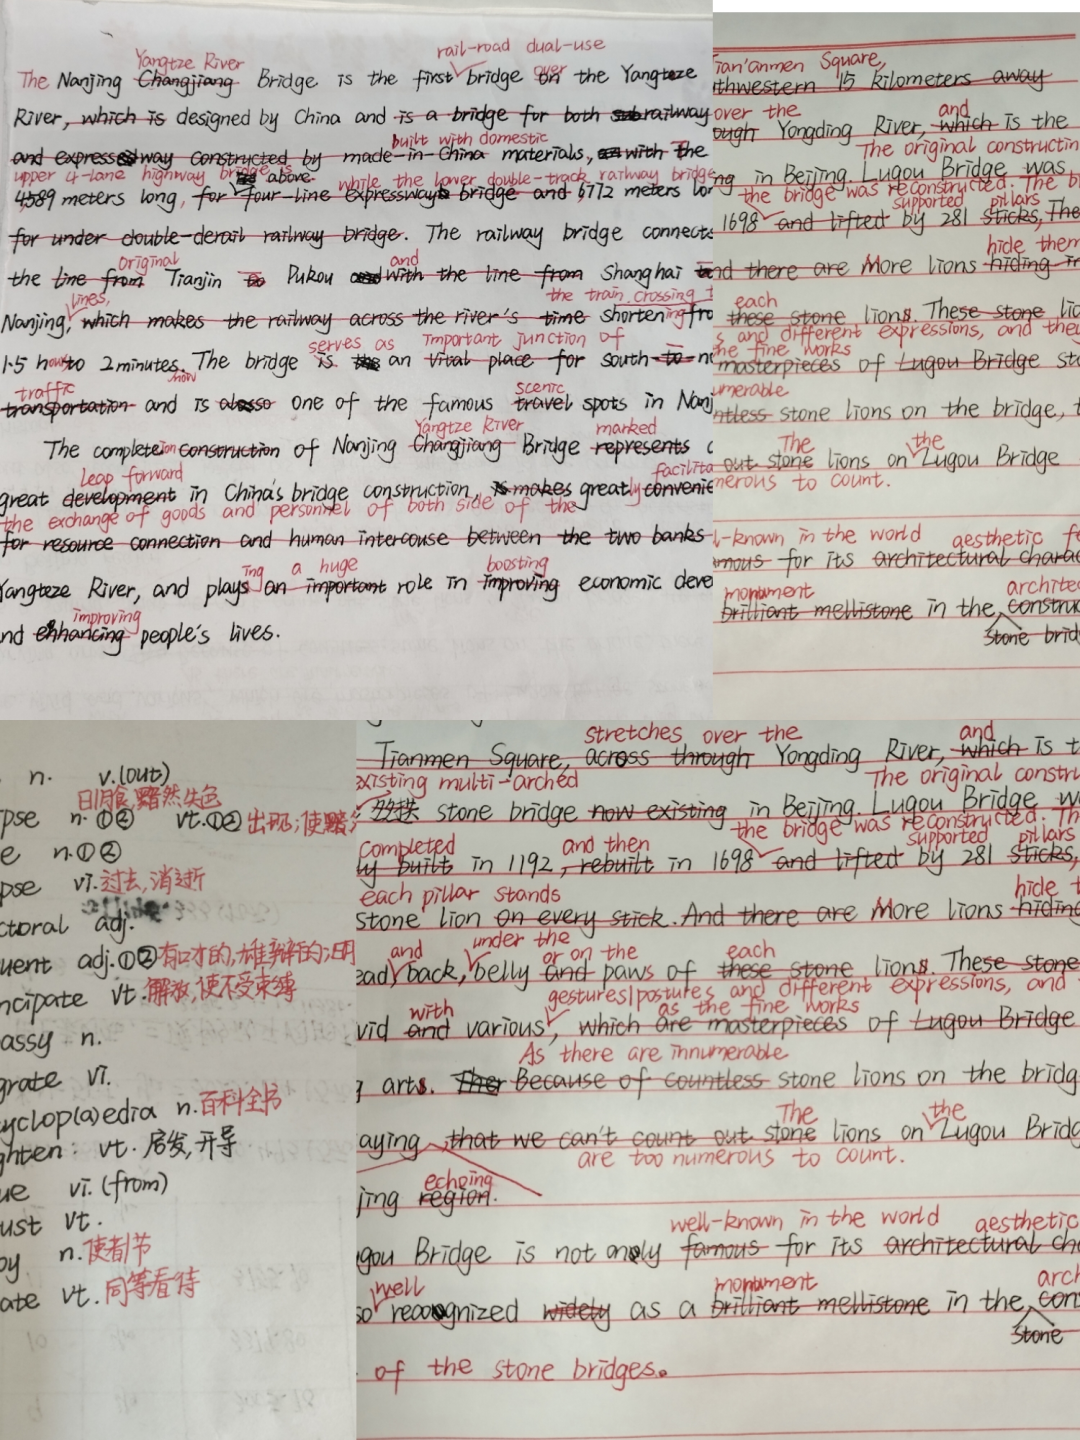 rail-road dual-use
Yangtze River
The Nanjing Changjiang Bridge is the first bridge on over the Yangteze
River, which is designed by China and is a bridge for both railway
built with domestic
and expressway constructed by made-in-China materials, with The
upper 4-lane highway bridge is above while the lower double-track railway bridge
4589 meters long, for four-line expressway bridge and 6772 meters lon
for under double-derail railway bridge. The railway bridge connects
original and
the line from Tianjin to Pukou and with the line from Shanghai
lines, the train crossing
Nanjing, which makes the railway across the river's time shortening fro
serves as important junction of
1.5 hours to 2 minutes. The bridge is an vital place for south to no
traffic now scenic
transportation and is also one of the famous travel spots in Nanj
Yangtze River marked
The completeion construction of Nanjing Changjiang Bridge represents
leap forward facilita
great development in China's bridge construction, makes greatly convenie
the exchange of goods and personnel of both side of the
for resource connection and human intercouse between the two banks
ing a huge boosting
Yangteze River, and plays an important role in improving economic deve
improving
nd enhancing people's lives.
Tian'anmen Square,
thwestern 15 kilometers away
over the and
ough Yongding River, which is the
The original constructin
ng in Beijing. Lugou Bridge was
the bridge was reconstructed. The b
supported pillars
1698 and lifted by 281 sticks, The
hide them
nd there are More lions hiding in
each
these stone lions. These stone lio
s and different expressions, and the
the fine works
masterpieces of Lugou Bridge sto
umerable
ntless stone lions on the bridge, t
The the
out stone lions on Lugou Bridge
nerous to count.
l-known in the world aesthetic fe
mous for its architectural charac
monument archited
brilliant mellistone in the construc
stone brid
n. v.(out)
日月食,黯然失色
pse n.①② vt.①②出现;使黯
e n.①②
pse vi.过去,消逝
ctoral adj.
uent adj.①②有口才的,雄辩的;明
ncipate vt.解放,使不受束缚
assy n.
grate vi.
yclop(a)edia n.百科全书
ghten: vt.启发,开导
ue vi.(from)
ust vt.
oy n.使者;节
ate vt.同等看待
stretches over the and
Tianmen Square, across through Yongding River, which is t
existing multi-arched The original constru
多拱 stone bridge now existing in Beijing. Lugou Bridge wa
the bridge was reconstructed. Th
completed and then supported pillars
ly built in 1192, rebuilt in 1698 and lifted by 281 sticks,
each pillar stands hide t
stone lion on every stick. And there are More lions hiding
and under the or on the each
ead back, belly and paws of these stone lions. These stone
gestures/postures and different expressions, and
with as the fine works
vid and various, which are masterpieces of Lugou Bridge
As there are innumerable
g arts. Because of countless stone lions on the bridg
The the
aying that we can't count out stone lions on Lugou Bridg
are too numerous to count.
echoing
jing region.
well-known in the world aesthetic
gou Bridge is not only famous for its architectural cha
well monument arch
so recognized widely as a brilliant mellistone in the con
stone
of the stone bridges.